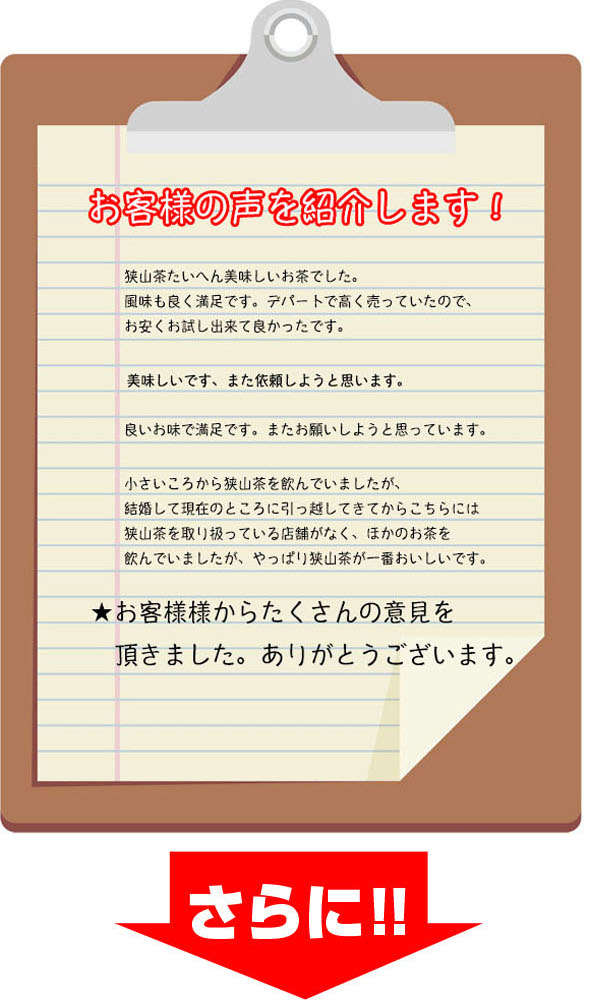 お客様の声を紹介します！
狭山茶たいへん美味しいお茶でした。
風味も良く満足です。デパートで高く売っていたので、
お安くお試し出来て良かったです。
美味しいです、また依頼しようと思います。
良いお味で満足です。またお願いしようと思っています。
小さいころから狭山茶を飲んでいましたが、
結婚して現在のところに引っ越してきてからこちらには
狭山茶を取り扱っている店舗がなく、ほかのお茶を
飲んでいましたが、やっぱり狭山茶が一番おいしいです。
★お客様様からたくさんの意見を
頂きました。ありがとうございます。
さらに!!